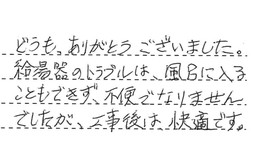 どうも、ありがとうございました。
給湯器のトラブルは、風呂に入る
こともできず、不便でなりません
でしたが、工事後は快適です。